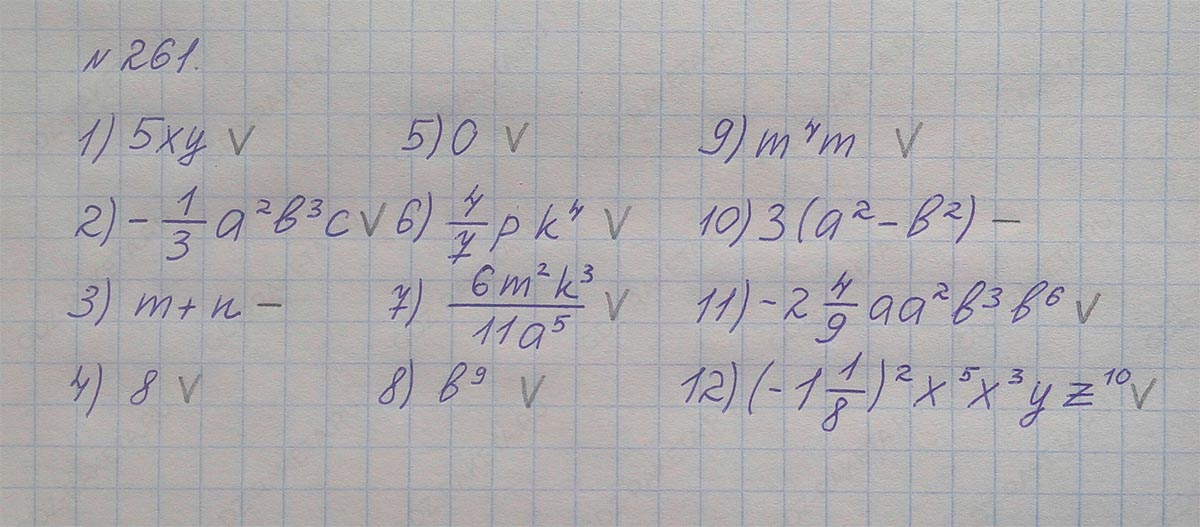 № 261.
1) 5xy V
2) -1/3 a²b³c V
3) m+n -
4) 8 V
5) 0 V
6) 4/7 p k⁴ V
7) 6m²k³/11a⁵ V
8) b⁹ V
9) m⁴m V
10) 3(a²-b²) -
11) -2 4/9 aa²b³b⁶ V
12) (-1 1/8)² x⁵x³yz¹⁰ V